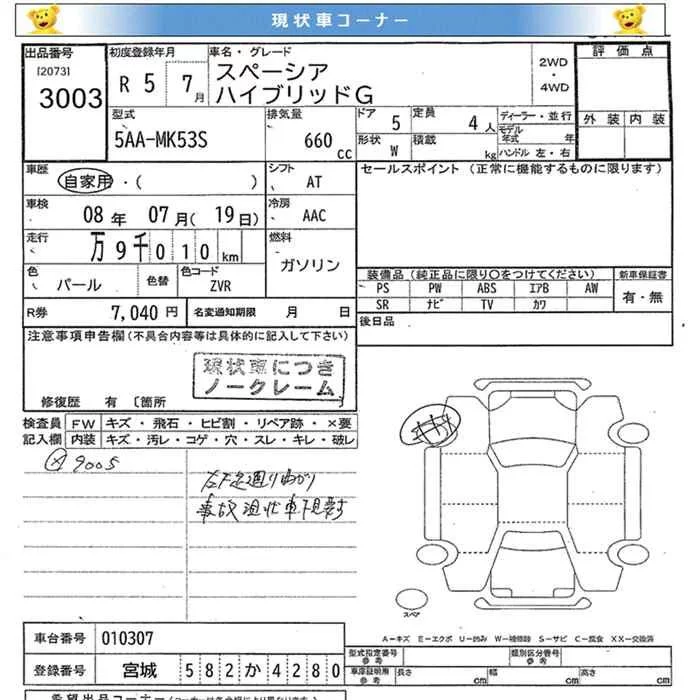 現状車コーナー
出品番号
[2073]
3003
初度登録年月
R 5 7月
車名・グレード
スペーシア
ハイブリッドG
2WD
・
4WD
評価点
外装 内装
型式
5AA-MK53S
排気量
660 cc
ドア 5
定員 4人
形状 W
積載 kg
ディーラー・並行
モデル年式 年
ハンドル 左・右
車歴
自家用・( )
シフト
AT
セールスポイント (正常に機能するものに限ります)
車検
08年 07月(19日)
冷房
AAC
走行
万9千010km
燃料
ガソリン
色
パール
色替
色コード
ZVR
装備品(純正品に限り○をつけてください)
新車保証書
PS PW ABS エアB AW
SR ナビ TV カワ
有・無
R券 7,040円
名変通知期限 月 日
後日品
注意事項申告欄(不具合内容等は具体的に記入して下さい)
現状車につき
ノークレーム
修復歴 有 〔箇所
検査員
記入欄
FW キズ・飛石・ヒビ割・リペア跡・×要
内装 キズ・汚レ・コゲ・穴・スレ・キレ・破レ
9005
事故現状車下見要す
スペア
A-キズ E-エクボ U-凹み W-補修跡 S-サビ C-腐食 XX-交換済
車台番号 010307
登録番号 宮城 582か4280
型式指定番号
参考
類別区分番号
参考
車庫証明用
参考
長さ cm
幅 cm
高さ cm
希望出品コーナー